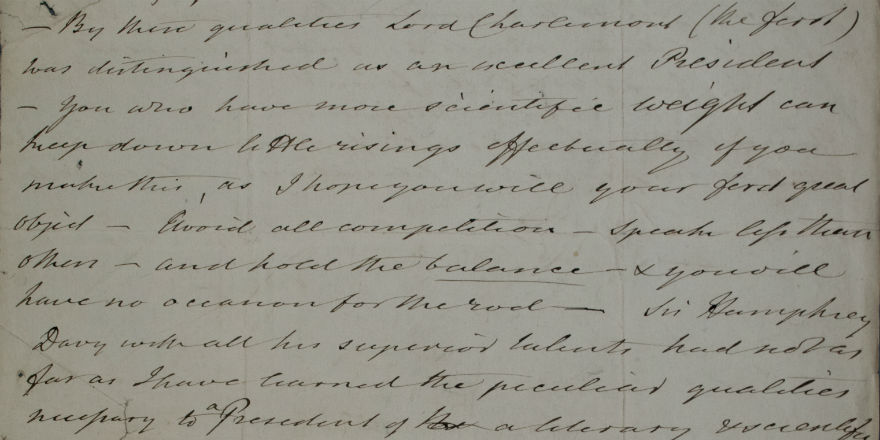 — By these qualities Lord Charlemont (the first)
was distinguished as an excellent President
— You who have more scientific weight can
keep down little risings effectually if you
make this, as I hope you will your first great
object — Avoid all competition — speak less than
others — and hold the balance — & you will
have no occasion for the rod — Sir Humphrey
Davy with all his superior talents had not as
far as I have learned the peculiar qualities
necessary to a President of a literary & scientific